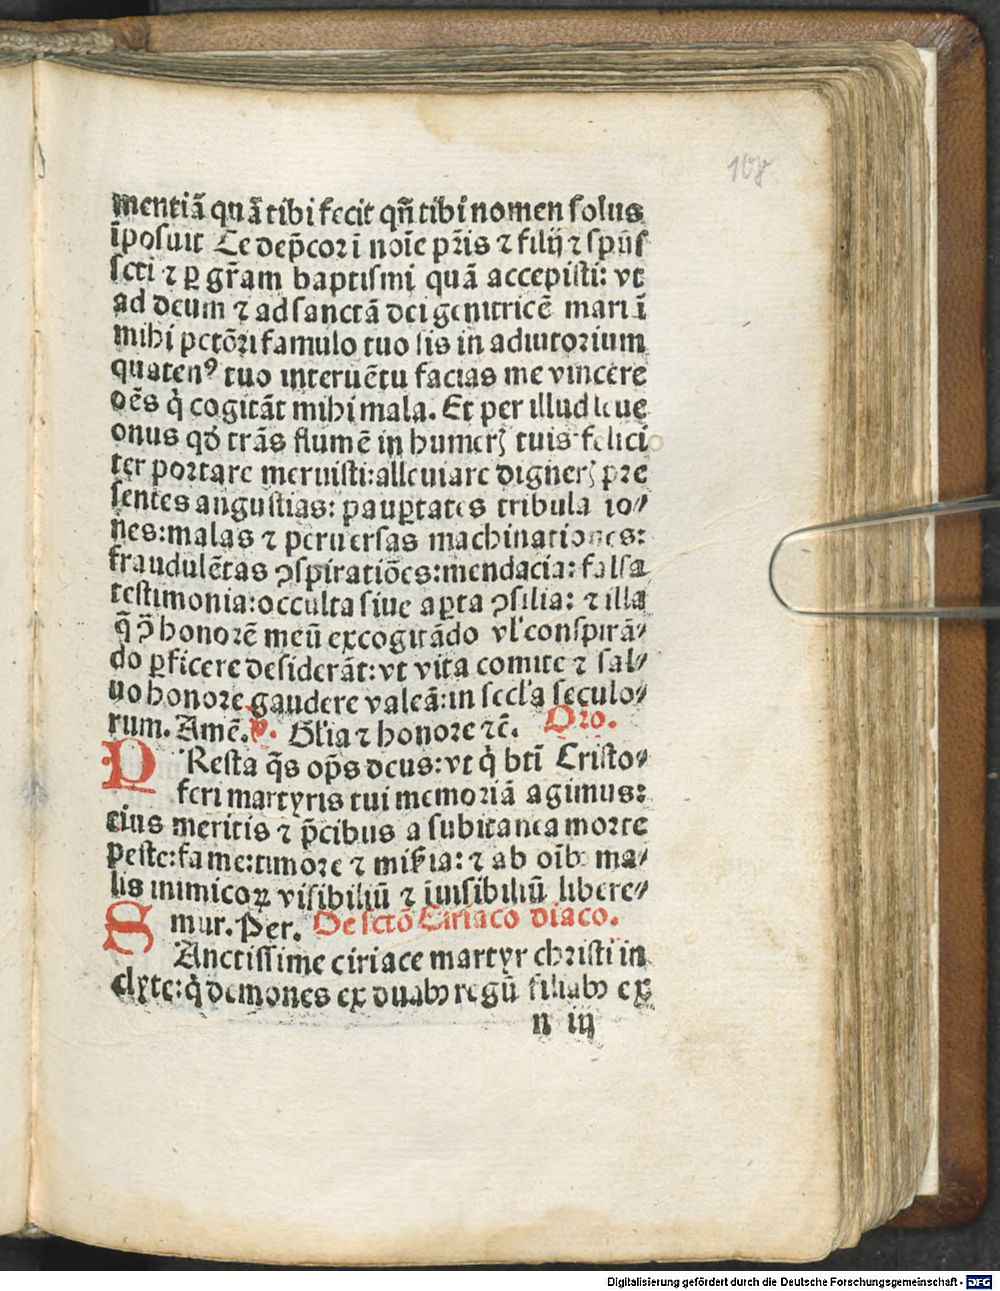 108
mentiā quā tibi fecit qn̄ tibi nomen solus
īposuit Te dep̄cor ī noīe pr̄is ⁊ filij ⁊ sp̄us
scti ⁊ ꝑ gr̄am baptismi quā accepisti: vt
ad deum ⁊ ad sanctā dei genitricē mariā
mihi pctōri famulo tuo sis in adiutorium
quatenꝰ tuo interuētu facias me vincere
oēs q̇ cogitāt mihi mala. Et per illud leue
onus qđ trās flumē in humerꝭ tuis felici
ter portare meruisti: alleuiare dignerꝭ pre
sentes angustias: pauꝑtates tribula io⸗
nes: malas ⁊ peruersas machinationes:
fraudulētas ꝯspiratiōes: mendacia: falsa
testimonia: occulta siue aꝑta ꝯsilia: ⁊ illa
q̄ ꝯ̄ honorē meū excogitādo vl' conspirā⸗
do ꝑficere desiderāt: vt vita comite ⁊ sal⸗
uo honore gaudere valeā: in secl'a seculo⸗
rum. Amē. V. Gl'ia ⁊ honore ⁊c̄. Oro.
PResta q̄s op̄s deus: vt q̇ bti Cristo⸗
feri martyris tui memoriā agimus:
eius meritis ⁊ p̄cibus a subitanea morte
peste: fame: timore ⁊ mis̄ia: ⁊ ab oībꝰ ma⸗
lis inimicoꝝ visibiliū ⁊ īuisibiliū libere⸗
mur. Per. De sctō Ciriaco diaco.
SAnctissime ciriace martyr christi in
clyte: q̇ demones ex duabꝰ regū filiabꝰ ex
n iij
Digitalisierung gefördert durch die Deutsche Forschungsgemeinschaft - DFG